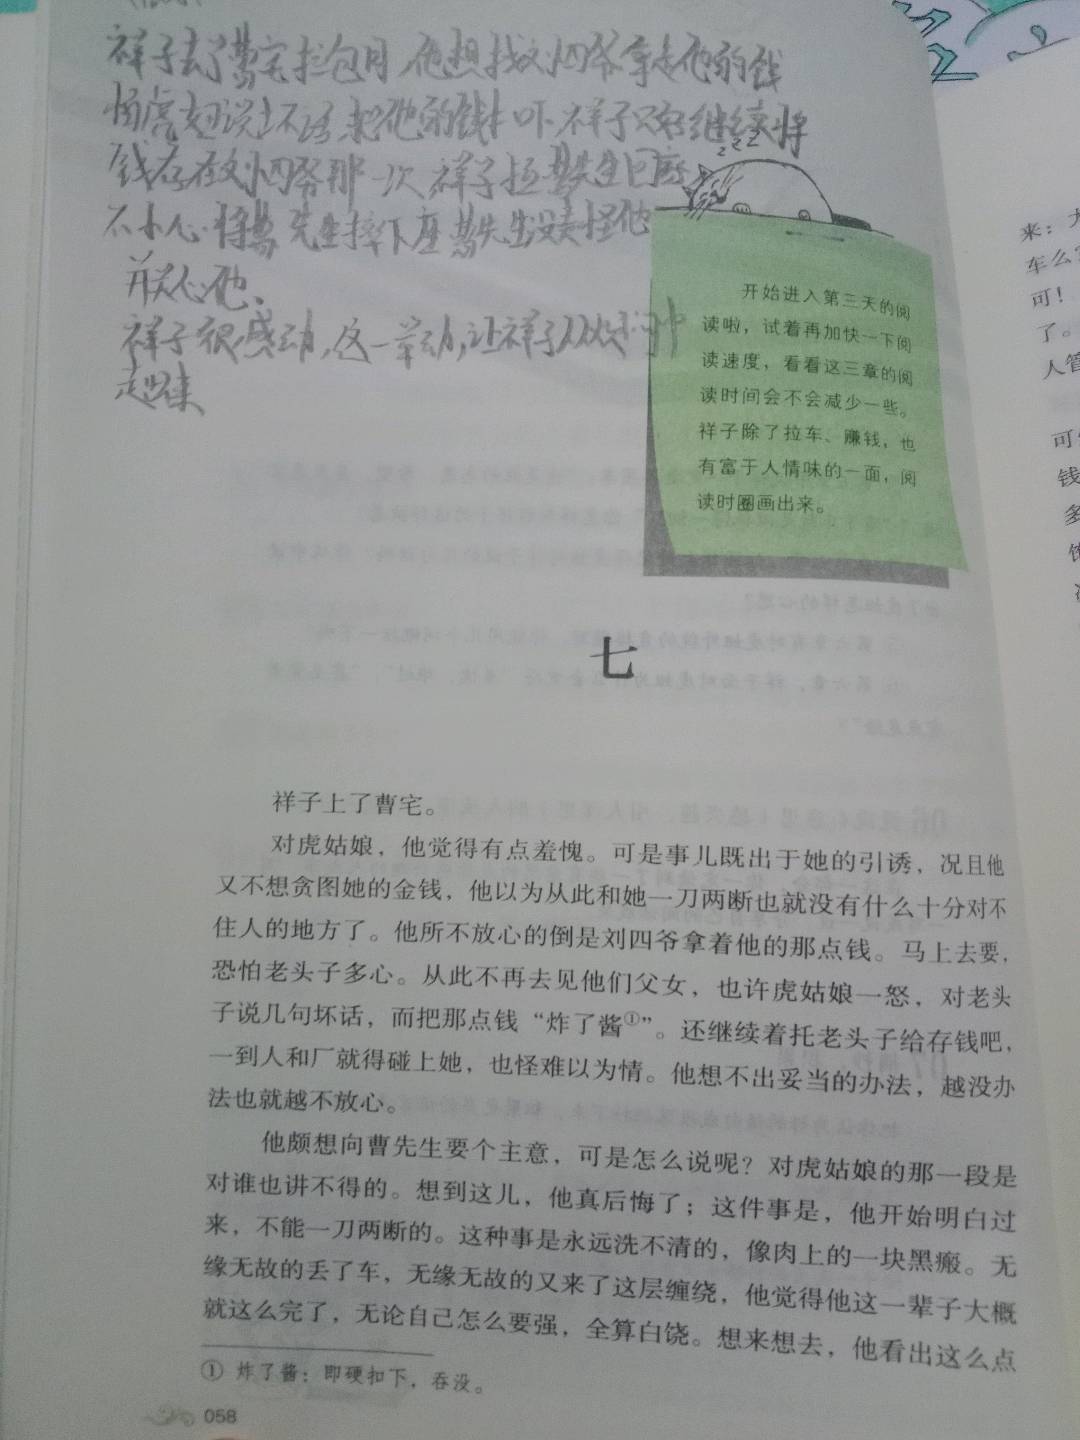 祥子去了曹宅拉包月,他想找刘四爷拿走他的钱
怕虎妞说坏话把他的钱 吓 祥子只好继续将
钱存在刘四爷那 一次 祥子拉曹先生回府
不小心将曹先生摔下座 曹先生没责怪他
并关心他、
祥子很感动,这一举动,让祥子从
起来
zzz
开始进入第三天的阅
读啦，试着再加快一下阅
读速度，看看这三章的阅
读时间会不会减少一些。
祥子除了拉车、赚钱，也
有富于人情味的一面，阅
读时圈画出来。
七
祥子上了曹宅。
对虎姑娘，他觉得有点羞愧。可是事儿既出于她的引诱，况且他
又不想贪图她的金钱，他以为从此和她一刀两断也就没有什么十分对不
住人的地方了。他所不放心的倒是刘四爷拿着他的那点钱。马上去要，
恐怕老头子多心。从此不再去见他们父女，也许虎姑娘一怒，对老头
子说几句坏话，而把那点钱“炸了酱①”。还继续着托老头子给存钱吧，
一到人和厂就得碰上她，也怪难以为情。他想不出妥当的办法，越没办
法也就越不放心。
他颇想向曹先生要个主意，可是怎么说呢？对虎姑娘的那一段是
对谁也讲不得的。想到这儿，他真后悔了；这件事是，他开始明白过
来，不能一刀两断的。这种事是永远洗不清的，像肉上的一块黑瘢。无
缘无故的丢了车，无缘无故的又来了这层缠绕，他觉得他这一辈子大概
就这么完了，无论自己怎么要强，全算白饶。想来想去，他看出这么点
① 炸了酱：即硬扣下，吞没。
058
来：
车么
可！
了。
人管
钱
多